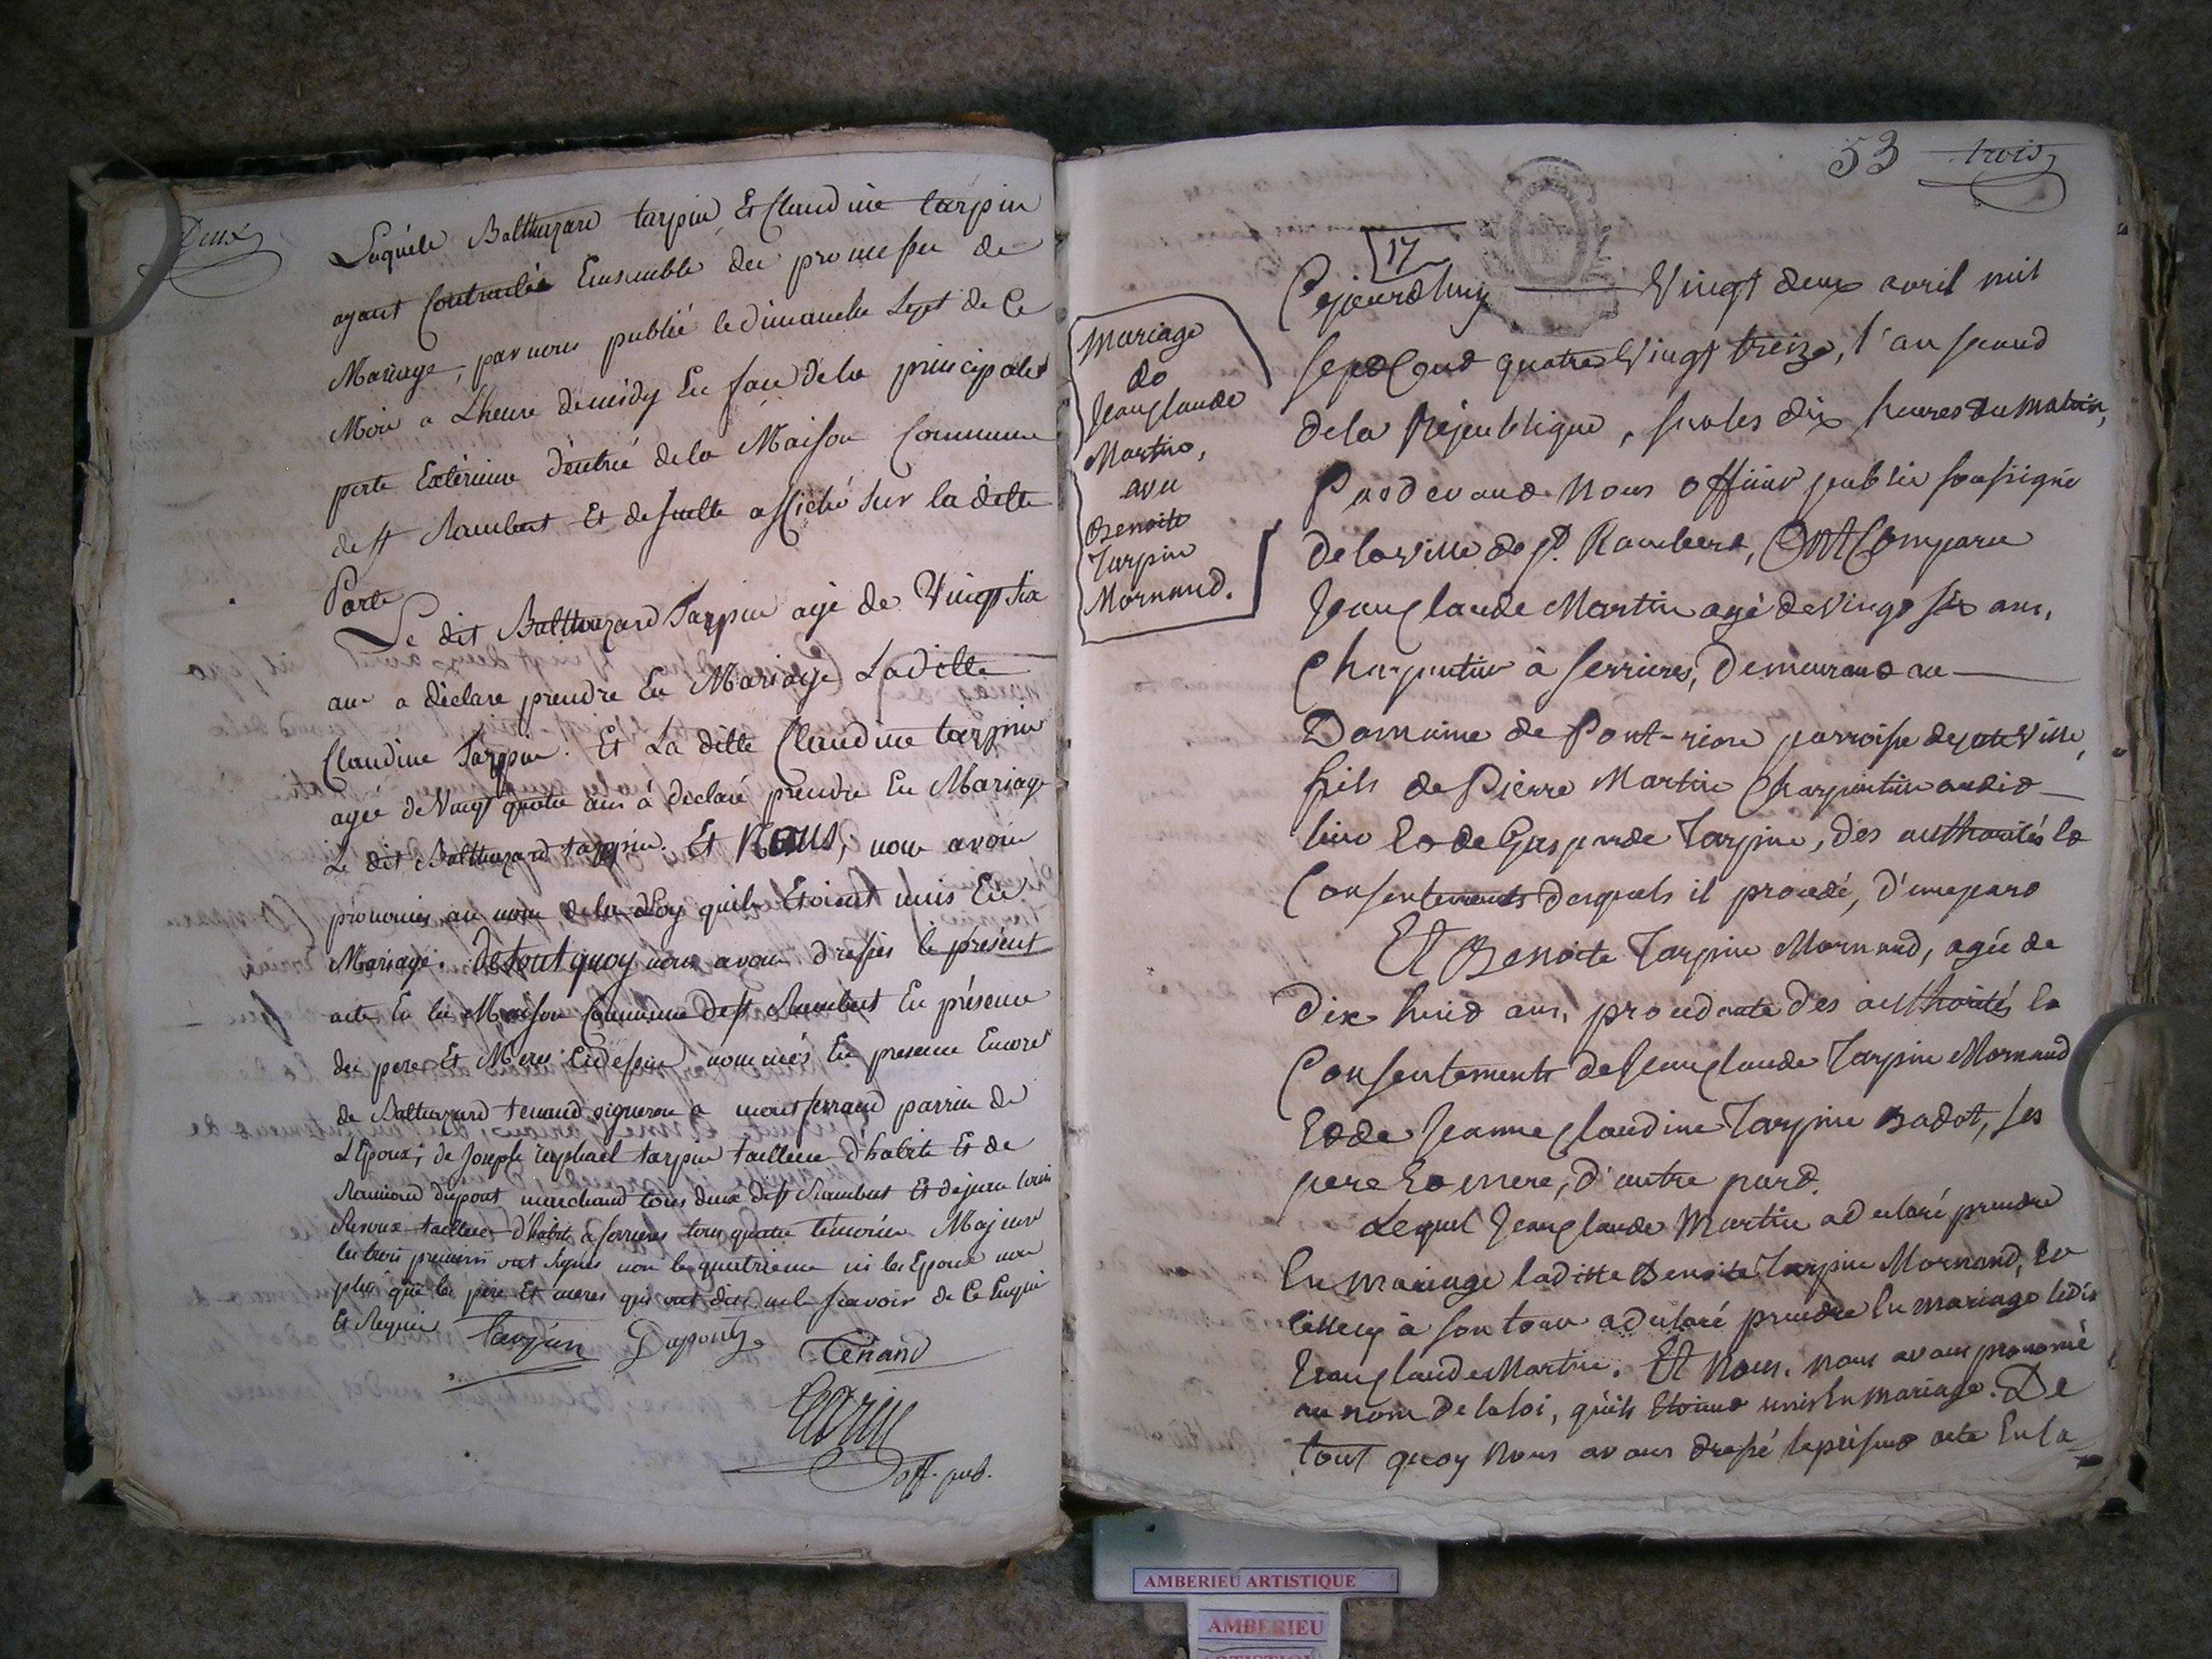 Deux
Lequels Balthazard tarpin Et Claudine tarpin
ayant Contractée Ensemble des promesses de
Mariage, par nous publié le dimanche Sept de Ce
Mois a Lheure de midy En face de la principale
porte Extérieure d'entrée de la Maison Commune
de st Rambert Et de suitte affiché sur la ditte
Porte
Le dit Balthazard Tarpin agé de Vingt six
ans a déclaré prendre En Mariage La ditte
Claudine Tarpin. Et La ditte Claudine tarpin
agée de Vingt quatre ans à déclaré prendre En Mariage
Le dit Balthazard tarpin. Et Nous, nous avons
prononcé au nom de la Loy quils Etoient unis En
Mariage. De tout quoy nous avons dressés le présent
acte En la Maison Commune de st Rambert En présence
des peres Et Meres Cidessus nommés En presence Encore
de Balthazard tenand vigneron a montferrand parrin de
L'Epoux; de Joseph raphael tarpin tailleur d'habits Et de
Raimond dupont marchand tous deux de st Rambert Et de jean louis
tailleur d'habits à serrieres tous quatre témoins Majeurs
les trois premiers ont signés non le quatrieme ni les Epoux non
plus que les père Et meres qui ont dits ne le scavoir de Ce Enquis
Et Requis
tarpin Dupont Tenand
off. pub.
53 trois
17
Mariage
de
Jean Claude
Martin,
avec
Benoite
Tarpin
Mornand.
Cejourdhuy Vingt deux avril mil
sept Cent quatre Vingt treize, l'an second
de la République, sur les dix heures du matin,
Pardevant Nous officier public soussigné
de la ville de St. Rambert, Ont Comparu
Jean Claude Martin agé de vingt six ans,
Charpentier à serrieres, demeurant au
Domaine de Pont- paroisse de cette Ville,
fils de Pierre Martin Charpentier audit
lieu Et de Gasparde Tarpin, des authorités Et
Consentements desquels il procede, d'une part
Et Benoite Tarpin Mornand, agée de
Dix huit ans, procedante des authorités Et
Consentements de Jean Claude Tarpin Mornand
Et de Jeanne Claudine Tarpin Badot, ses
pere Et mere, d'autre part.
Lequel Jean Claude Martin a declaré prendre
En mariage laditte Benoite Tarpin Mornand, Et
Celle cy à son tour a declaré prendre En mariage ledit
Jean Claude Martin. Et Nous, nous avons prononcé
au nom de la loi, qu'ils Etoient unis En mariage. De
tout quoy Nous avons dressé le présent acte En la
AMBERIEU ARTISTIQUE
AMBERIEU